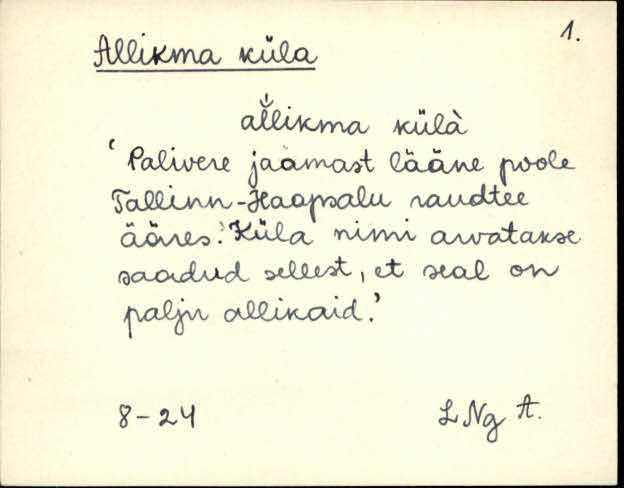 1.
Allikma küla
alĺikma külà
‘Palivere jaamast lääne poole
Tallinn-Haapsalu raudtee
ääres.’ ‘Küla nimi arvatakse
saadud sellest, et seal on
palju allikaid.’
8-24 L Ng A.